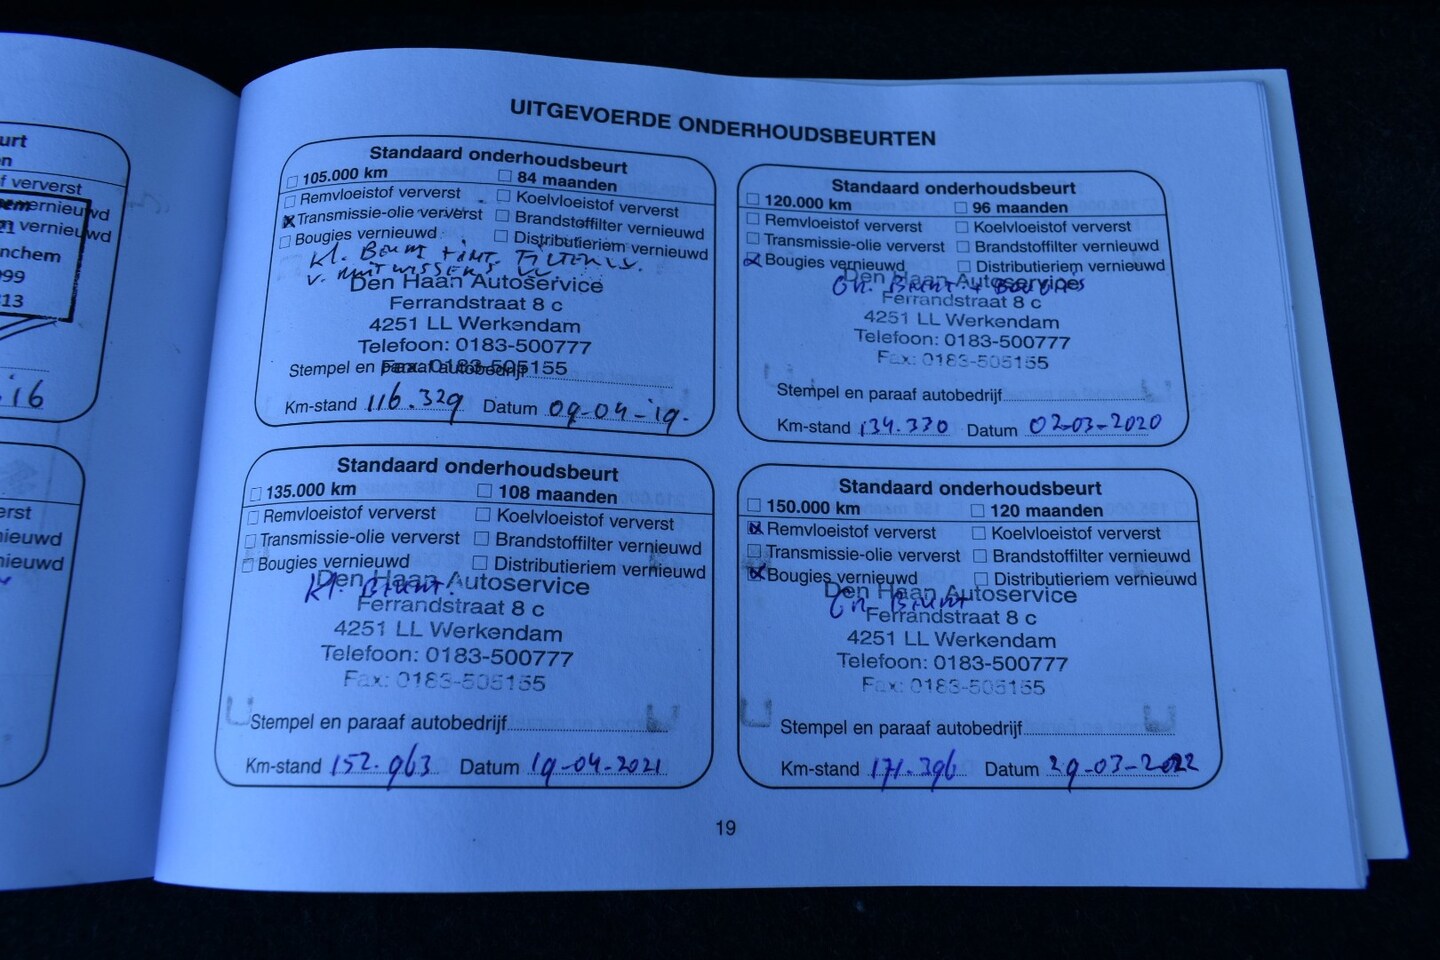 urt
en
f ververst
vernieuwd
vernieuwd
nchem
99
313
'16
erst
nieuwd
nieuwd
UITGEVOERDE ONDERHOUDSBEURTEN
Standaard onderhoudsbeurt
105.000 km 84 maanden
Remvloeistof ververst Koelvloeistof ververst
Transmissie-olie ververst Brandstoffilter vernieuwd
Bougies vernieuwd Distributieriem vernieuwd
Kl. Beurt + int. Filter
v. Ruitwissers
Den Haan Autoservice
Ferrandstraat 8 c
4251 LL Werkendam
Telefoon: 0183-500777
Fax: 0183-505155
Stempel en paraaf autobedrijf
Km-stand 116.329 Datum 09-04-'19.
Standaard onderhoudsbeurt
120.000 km 96 maanden
Remvloeistof ververst Koelvloeistof ververst
Transmissie-olie ververst Brandstoffilter vernieuwd
Bougies vernieuwd Distributieriem vernieuwd
Gr. Beurt + Bougies
Den Haan Autoservice
Ferrandstraat 8 c
4251 LL Werkendam
Telefoon: 0183-500777
Fax: 0183-505155
Stempel en paraaf autobedrijf
Km-stand 134.330 Datum 02-03-2020
Standaard onderhoudsbeurt
135.000 km 108 maanden
Remvloeistof ververst Koelvloeistof ververst
Transmissie-olie ververst Brandstoffilter vernieuwd
Bougies vernieuwd Distributieriem vernieuwd
Kl. Beurt.
Den Haan Autoservice
Ferrandstraat 8 c
4251 LL Werkendam
Telefoon: 0183-500777
Fax: 0183-505155
Stempel en paraaf autobedrijf
Km-stand 152.963 Datum 19-04-2021
Standaard onderhoudsbeurt
150.000 km 120 maanden
Remvloeistof ververst Koelvloeistof ververst
Transmissie-olie ververst Brandstoffilter vernieuwd
Bougies vernieuwd Distributieriem vernieuwd
Den Haan Autoservice
Gr. Beurt
Ferrandstraat 8 c
4251 LL Werkendam
Telefoon: 0183-500777
Fax: 0183-505155
Stempel en paraaf autobedrijf
Km-stand 171.396 Datum 29-03-2022
19